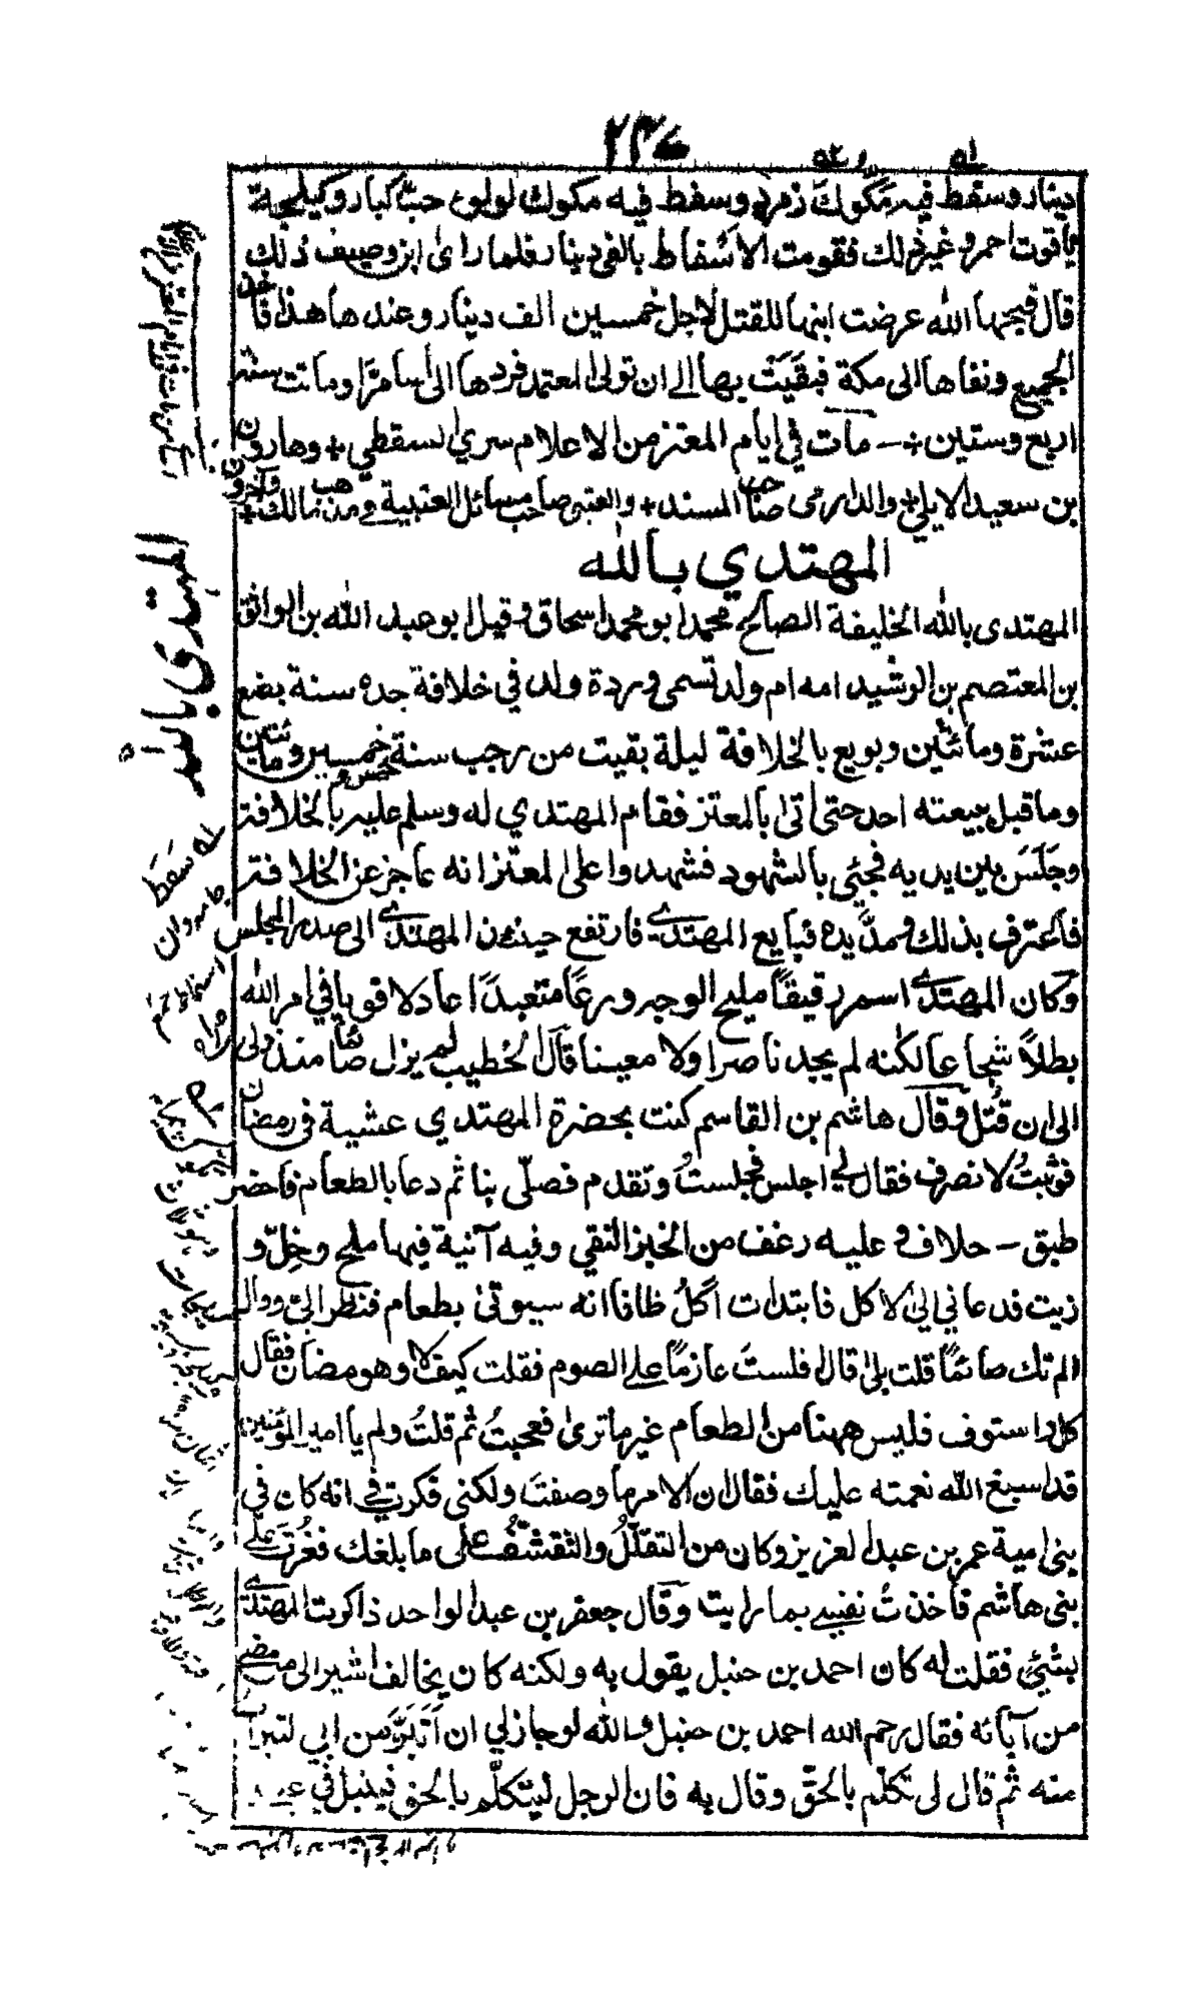 ٢٣٧
دينار وسقط فيه مكوك زمرد وسقط فيه مكوك لولوع حبّ كبار وكيلجة
ياقوت احمر وغير ذلك فقومت الاسفاط بالفى دينار فلما راى ابن وصيف ذلك
قال قبحها الله عرضت ابنها للقتل لاجل خمسين الف دينار وعندها هذا فاخذ
الجميع ونفاها الى مكة فبقيت بها الى ان تولى المعتمد فردها الى سامرّا وماتت سنة
اربع وستين + — مات في ايام المعتز من الاعلام سري السقطي + وهارون
بن سعيد الايلي + والدارمى صاحب المسند + والعتبى صاحب مسائل العتبية في مذهب مالك + وآخرون
المهتدي بالله
المهتدى بالله الخليفة الصالح محمد ابو محمد اسحاق وقيل ابو عبد الله بن الواثق
بن المعتصم بن الرشيد امه ام ولد تسمى وردة ولد في خلافة جده سنة بضع
عشرة ومائتين وبويع بالخلافة ليلة بقيت من رجب سنة خمس و خمسين ومائتين
وما قبل بيعته احد حتى اتى بالمعتز فقام المهتدي له وسلم عليه بالخلافة
وجلس بين يديه فجئي بالشهود فشهدوا على المعتز انه عاجز عن الخلافة
فاعترف بذلك ومدّ يده فبايع المهتدي فارتفع حينئذ المهتدي الى صدر المجلس
وكان المهتدي اسمر رقيقًا مليح الوجه ورعًا متعبدًا عادلا قويا في امر الله
بطلاً شجاعا لكنه لم يجد ناصرا ولا معينا قال الخطيب لم يزل صائما منذ ولى
الى ان قُتل وقال هاشم بن القاسم كنت بحضرة المهتدي عشية فى رمضان
فوثبتُ لانصرف فقال لي اجلس فجلستُ وتقدم فصلّى بنا ثم دعا بالطعام فاحضر
طبق — خلاف وعليه رغف من الخبز النقي وفيه آنية فيها ملح وخلّ و
زيت فدعاني الى الاكل فابتدات آكلُ ظانا انه سيوتى بطعام فنظر الىّ وقال
الم تك صائمًا قلت بلى قال فلستَ عازمًا على الصوم فقلت كيف لا وهو رمضان فقال
كل واستوف فليس ههنا من الطعام غير ما ترى فعجبتُ ثم قلتُ ولم يا امير المؤمنين
قد اسبغ الله نعمته عليك فقال ان الامر ما وصفتَ ولكنى فكرت في انه كان في
بنى امية عمر بن عبد العزيز وكان من التقلّلُ والتقشّفُ على ما بلغك فغُرتُ علَى
بنى هاشم فاخذتُ نفسي بما رايت وقال جعفر بن عبد الواحد ذاكرت المهتدي
بشئ فقلت له كان احمد بن حنبل يقول به ولكنه كان يخالف اشير الى من مضى
من آبائه فقال رحم الله احمد بن حنبل والله لو جاز لي ان اتبرّأ من ابي لتبرأت
منه ثم قال لى تكلّم بالحقّ وقال به فان الرجل ليتكلّم بالحق فينبل في عيني
المهتدي بالله